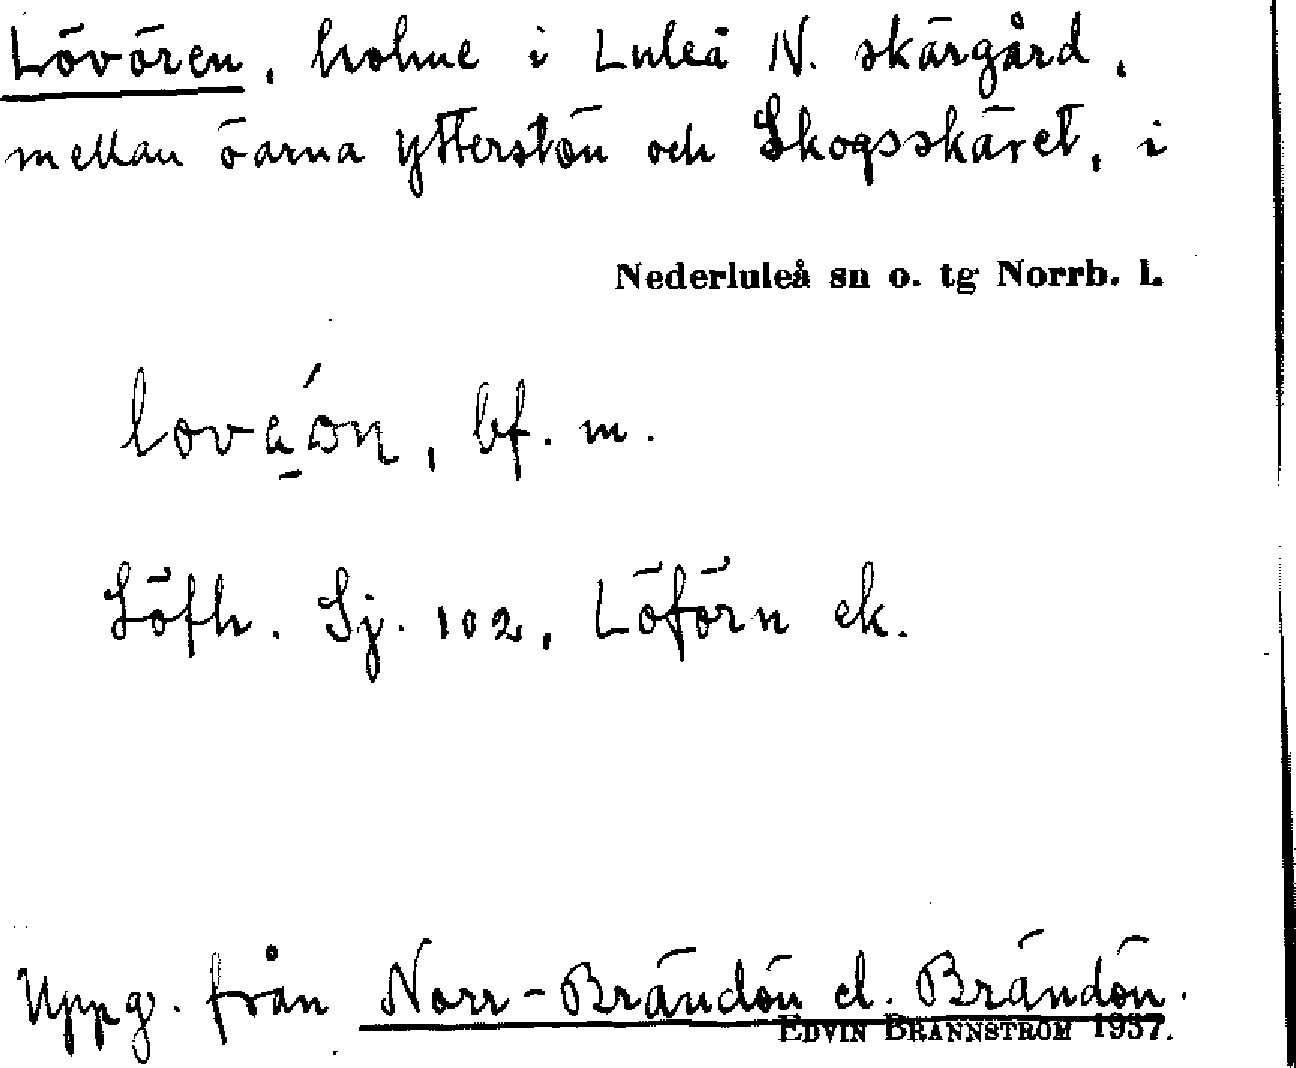 Lövören, holme i Luleå N. skärgård,
mellan öarna Ytterstön och Skogsskäret, i
Nederluleå sn o. tg Norrb. l.
bf. m.
Löfh. Sj. 102, Löförn ek.
Uppg. från Norr-Brändön el. Brändön.
EDVIN BRÄNNSTRÖM 1937.